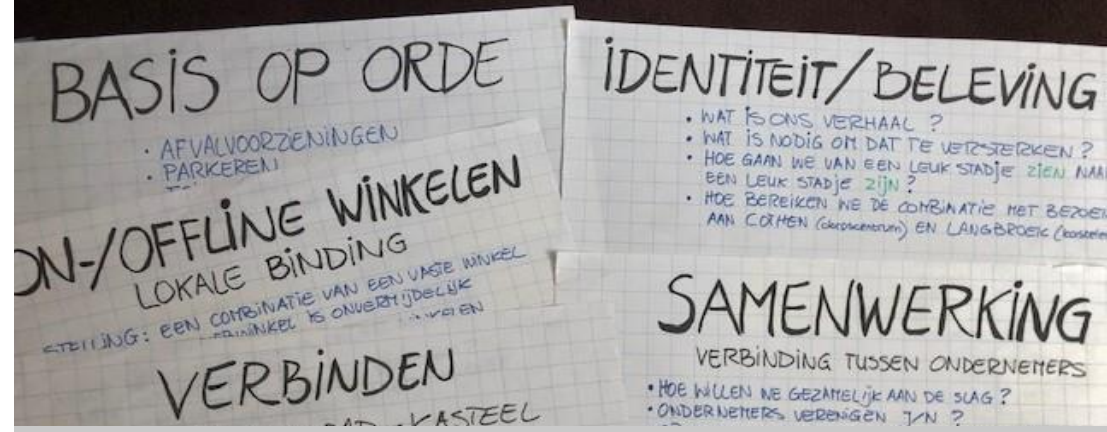 BASIS OP ORDE
• AFVALVOORZIENINGEN
• PARKEREN
ON-/OFFLINE WINKELEN
LOKALE BINDING
STELLING: EEN COMBINATIE VAN EEN VASTE WINKEL
IS ONVERMIJDELIJK
VERBINDEN
KASTEEL
IDENTITEIT/BELEVING
• WAT IS ONS VERHAAL ?
• WAT IS NODIG OM DAT TE VERSTERKEN ?
• HOE GAAN WE VAN EEN LEUK STADJE ZIEN NAAR
EEN LEUK STADJE ZIJN ?
• HOE BEREIKEN WE DE COMBINATIE MET BEZOEK
AAN COTHEN (dorpscentrum) EN LANGBROEK
SAMENWERKING
VERBINDING TUSSEN ONDERNEMERS
• HOE WILLEN WE GEZAMELIJK AAN DE SLAG ?
• ONDERNEMERS VERENIGEN J/N ?